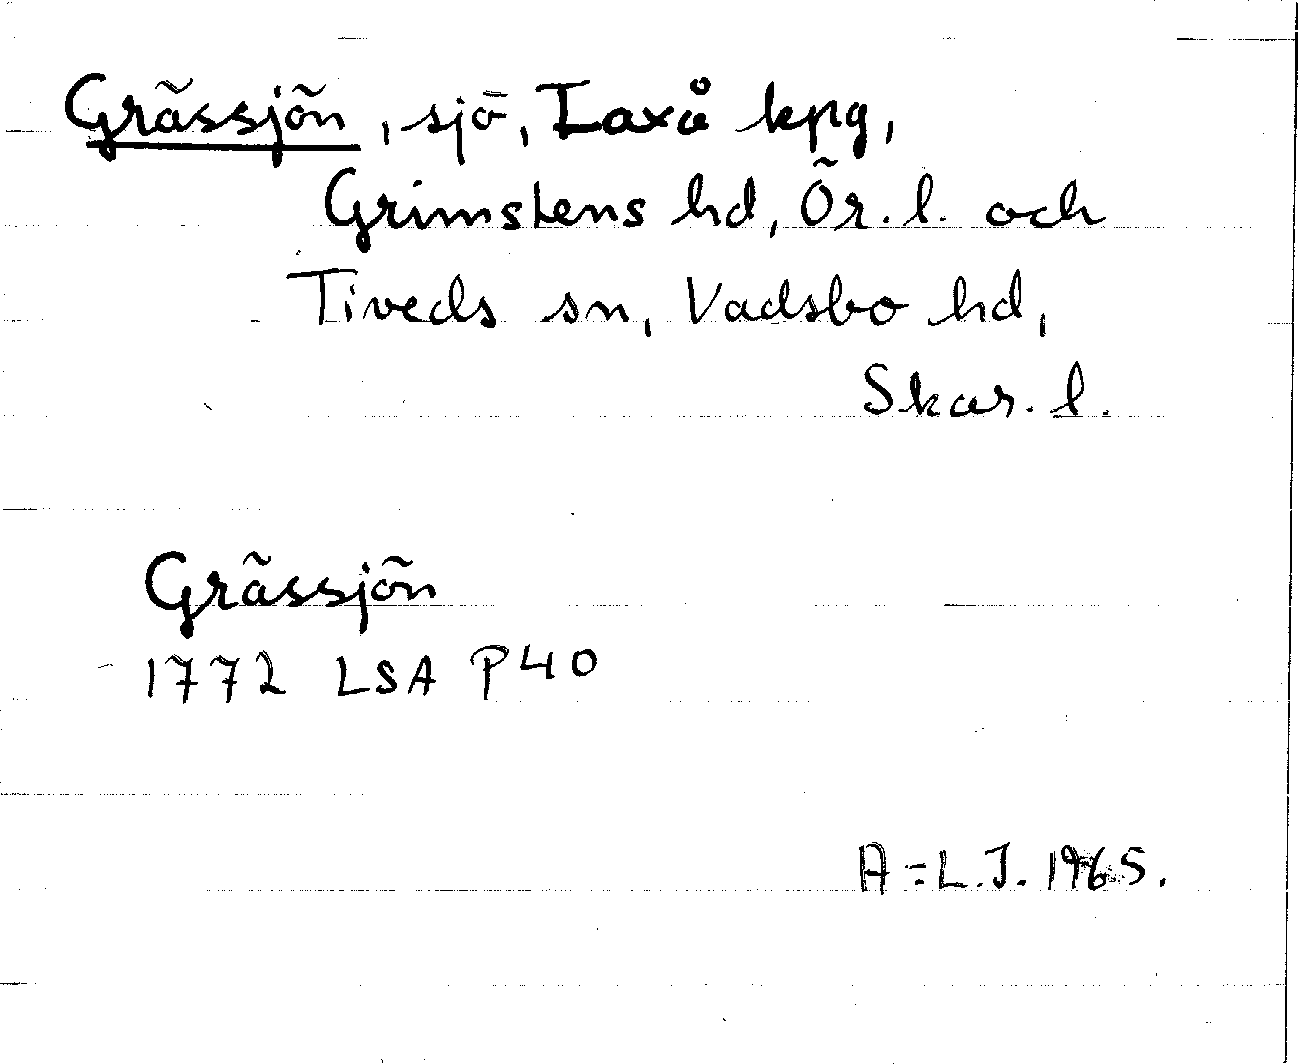 Grässjön, sjö, Laxå kpg,
Grimstens hd, Ör. l. och
Tiveds sn, Vadsbo hd,
Skar. l.
Grässjön
1772 LSA P40
A-L.J. 1965.